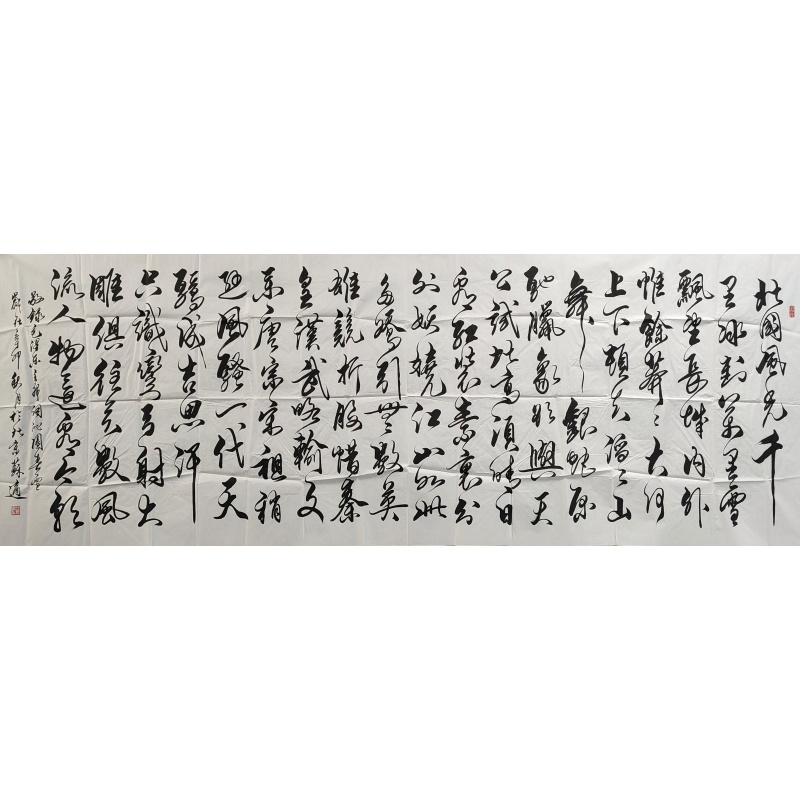 北國風光千
里冰封萬里雪
飄望長城内外
惟餘莽々大河
上下頓失滔々山
舞銀蛇原
馳臘象欲與天
公試比高須晴日
看紅裝素裹分
外妖嬈江山如此
多嬌引無數英
雄競折腰惜秦
皇漢武略輸文
采唐宗宋祖稍
遜風騷一代天
驕成吉思汗
只識彎弓射大
雕俱往矣數風
流人物還看今朝
敬録毛澤東主席詞沁園春雪
歲在癸卯秋月於北京蘇